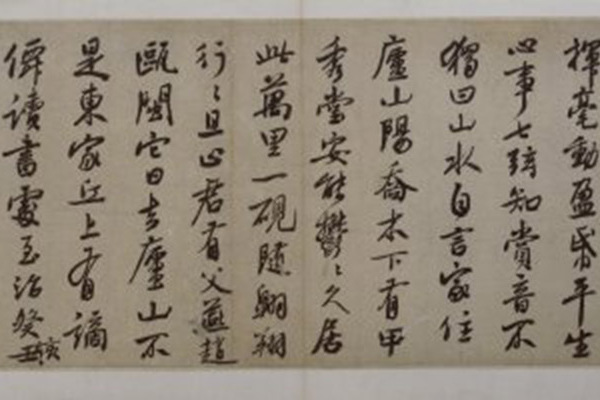 揮毫動盈帋平生
心事七弦知賞音不
獨曰山水自言家住
廬山陽喬木下有甲
秀堂安能鬱〻久居
此萬里一硯隨翱翔
行〻且止君有父燕趙
甌閩它日去廬山不
是東家丘上有謫
僊讀書處至治癸亥